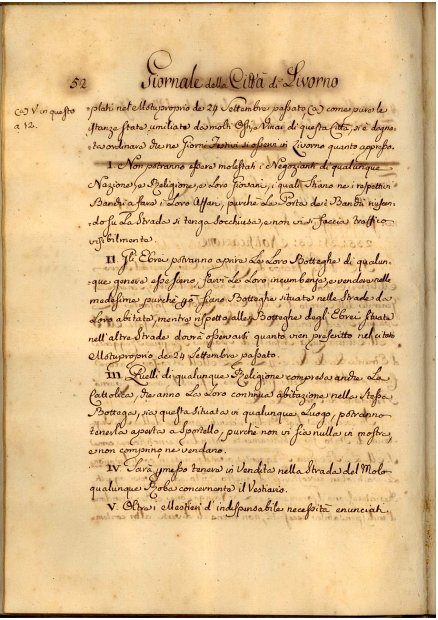 52 Giornale della Città di Livorno
(a) V. in questo
a 12.
plati nel Motuproprio de 24 Settembre passato, (a) come pure le
Istanze State umiliate da molti Osti, e Vinai di questa Città, si è degna-
to ordinare che ne Giorni Festivi si osservi in Livorno quanto appresso.
I. Non potranno essere molestati i Negozianti di qualunque
Nazione, e Religione, e Loro Giovani, i quali stiano ne i rispettivi
Banchi a fare i Loro Affari, purchè La Porta de i Banchi riuscen-
do su La Strada si tenga Socchiusa, e non vi si faccia traffico
visibilmente.
II Gli Ebrei potranno aprire Le Loro Botteghe di qualun-
que genere esse siano, farvi Le Loro incumbenze, e vendere nelle
medesime purchè siano Botteghe situate nelle Strade da
Loro abitate, mentre rispetto alle Botteghe degli Ebrei situate
nell'altre Strade dovrà osservarsi quanto vien prescritto nel citato
Motuproprio de 24 Settembre passato.
III Quelli di qualunque Religione compresa anche La
Cattolica, che anno La Loro continua abitazione nella Stessa
Bottega, sia questa Situata in qualunque Luogo, potranno
tenerla aperta a Sportello, purchè non vi sia nulla in mostra,
e non comprino, ne vendano.
IV Sarà permesso tenere in Vendita nella Strada del Molo
qualunque Roba concernente il Vestiario.
V. Oltre i Mestieri d'indispensabile necessità enunciati